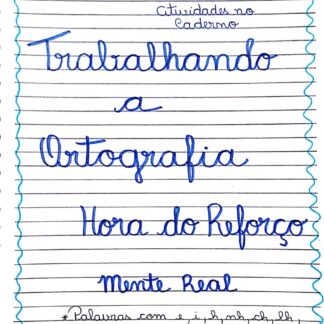 Atividades no
Caderno
Trabalhando
a
Ortografia
Hora do Reforço
Mente Real
* Palavras com e, i, h, nh, ch, lh,